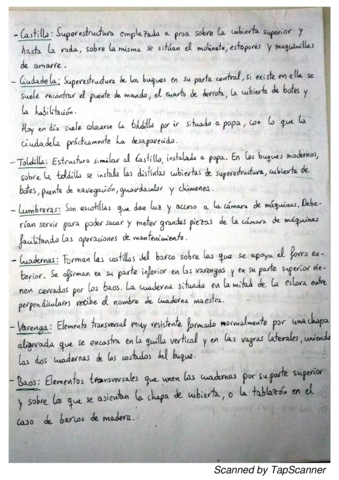 - Castillo: Superestructura emplazada a proa sobre la cubierta superior y
hasta la roda, sobre la misma se sitúan el molinete, estopores y maquinillas
de amarre.
- Ciudadela: Superestructura de los buques en su parte central, si existe en ella se
suele encontrar el puente de mando, el cuarto de derrota, la cubierta de botes y
la habilitación.
Hoy en día suele colocarse la toldilla por ir situado a popa, con lo que la
ciudadela prácticamente ha desaparecido.
- Toldilla: Estructura similar al Castillo, instalado a popa. En los buques modernos,
sobre la toldilla se instala las distintas cubiertas de superestructura, cubierta de
botes, puente de navegación, guardacalor y chimenea.
- Lumbreras: Son escotillas que dan luz y acceso a la cámara de máquinas. Debe-
rían servir para poder sacar y meter grandes piezas de la cámara de máquinas
facilitando las operaciones de mantenimiento.
- Cuadernas: Forman las costillas del barco sobre las que se apoya el forro ex-
terior. Se afirman en su parte inferior en las varengas y en su parte superior vie-
nen cerrados por los baos. La cuaderna situada en la mitad de la eslora entre
perpendiculares recibe el nombre de cuaderna maestra.
- Varenga: Elemento transversal muy resistente formado normalmente por una chapa
aligerada que se encastra en la quilla vertical y en las vagras laterales, uniendo
las dos cuadernas de los costados del buque.
- Baos: Elementos transversales que unen las cuadernas por su parte superior
y sobre los que se asientan la chapa de cubierta, o la tablazón en el
caso de barcos de madera.
Scanned by TapScanner